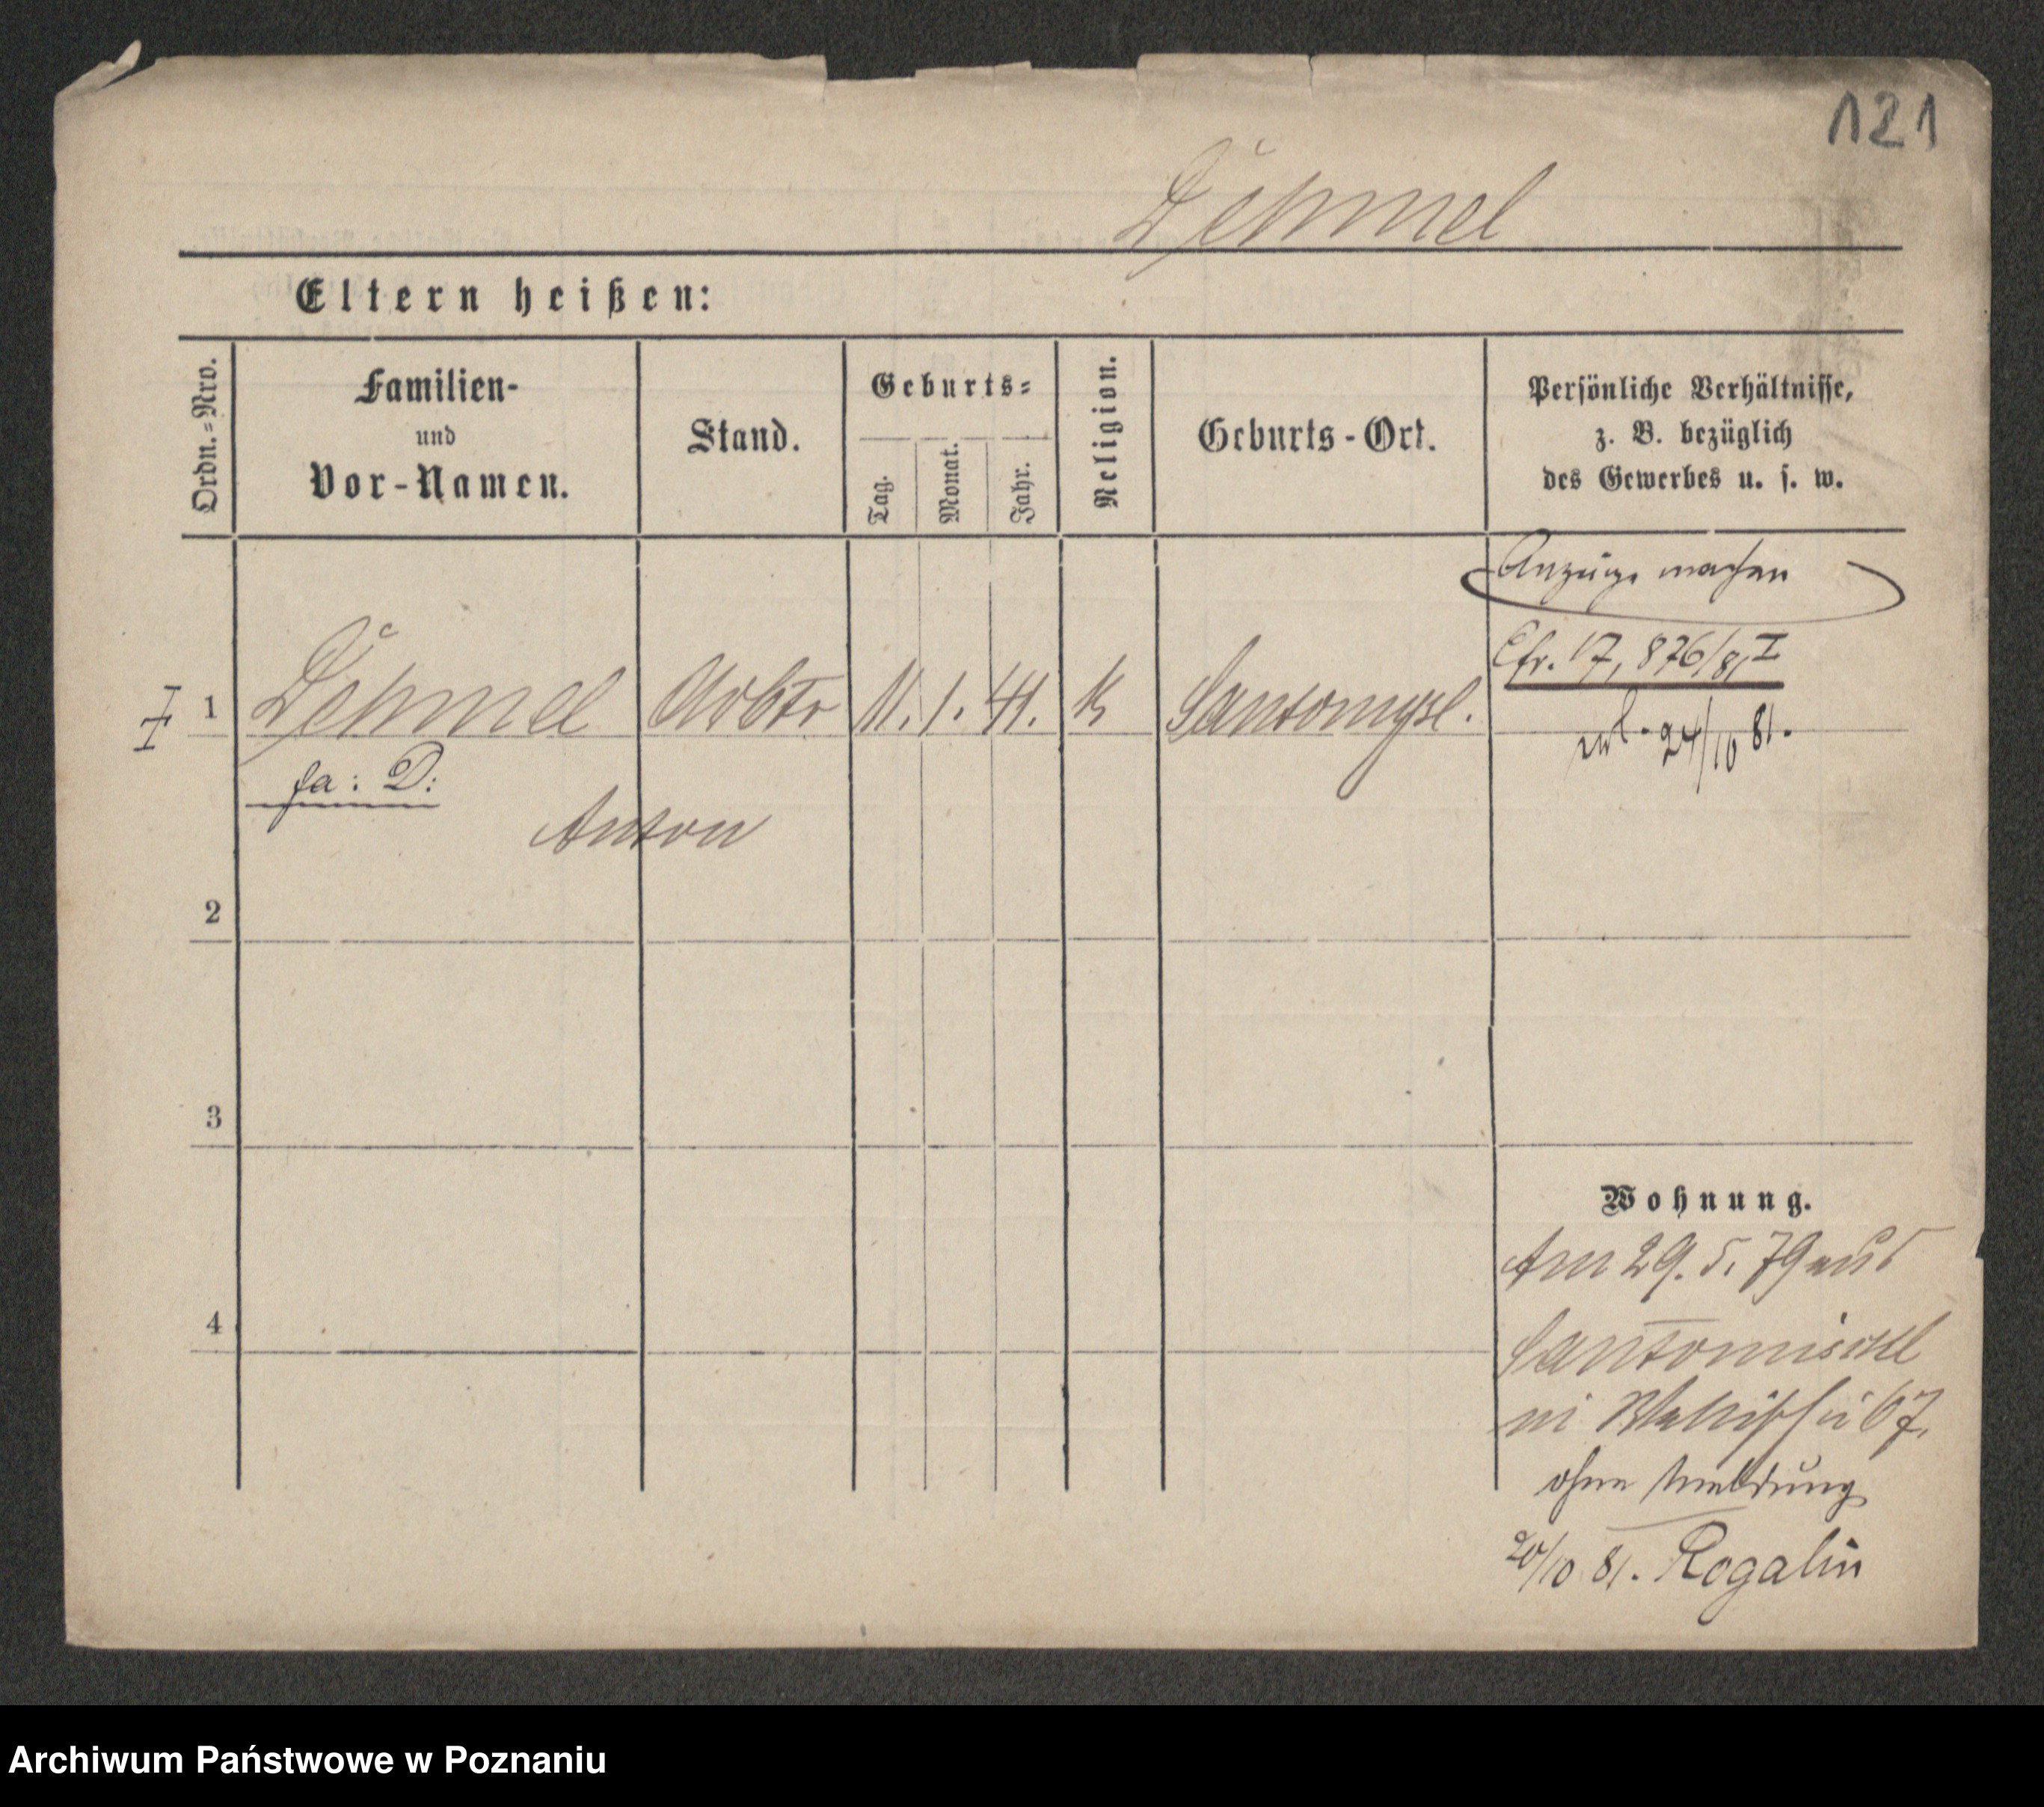 121
Dehmel
Eltern heißen:
Ordn.-Nro.
Familien-
und
Vor-Namen.
Stand.
Geburts-
Tag.
Monat.
Jahr.
Religion.
Geburts-Ort.
Persönliche Verhältnisse,
z. B. bezüglich
des Gewerbes u. s. w.
Anzeige machen
Cfr. 17,876/81 I
24/10 81.
I 1 Dehmel Arbtr 11. 1. 41. K Santomysl.
fa: D:
Anton
2
3
4
Wohnung.
Am 29. 5. 79 aus
Santomischl
67.
ohne Meldung
20/10 81. Rogalin
Archiwum Państwowe w Poznaniu